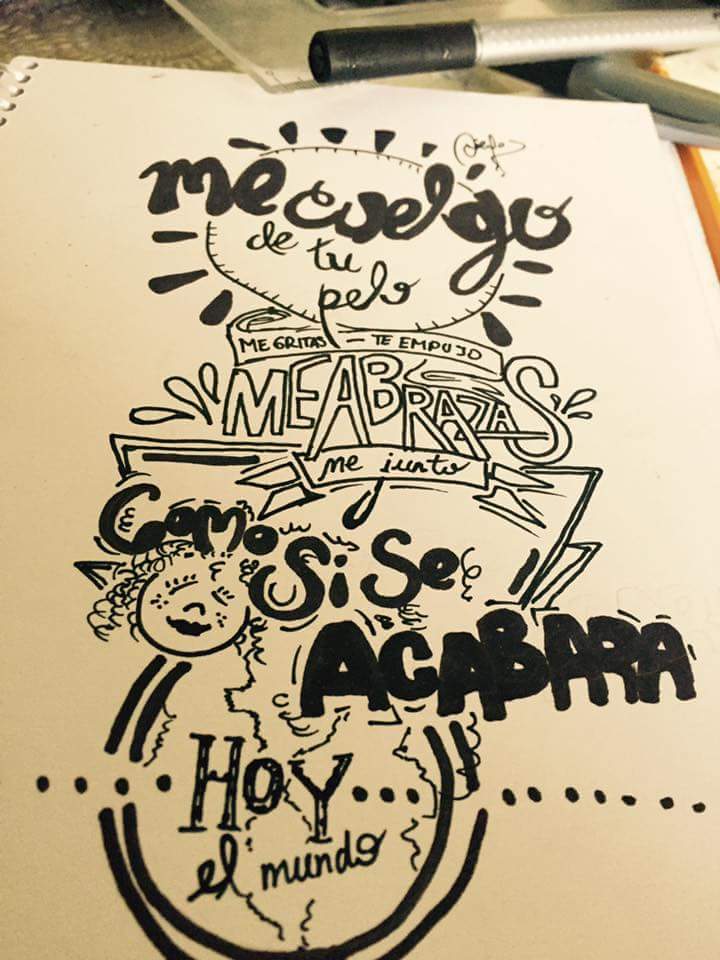 me cuelgo
de tu
pelo
ME GRITAS — TE EMPUJO
ME ABRAZAS
me junto
Como
Si Se
ACABARA
HOY...
el mundo